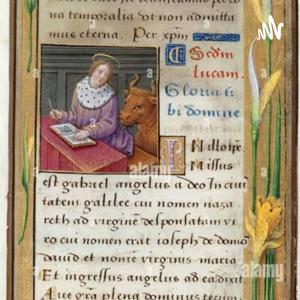 na temporalia ut non admitta
mus eterna. Per xpm
Secdm
lucam.
Gloria ti
bi domine
IN illo tpe.
Missus
est gabriel angelus a deo In ciui
tatem galilee cui nomen naza
reth ad virginē desponsatam vi
ro cui nomen erat ioseph de domo
dauid et nomē virginis maria
Et ingressus angelus ad ea dixit
Aue gr̄a plena dominus tecum
alamy